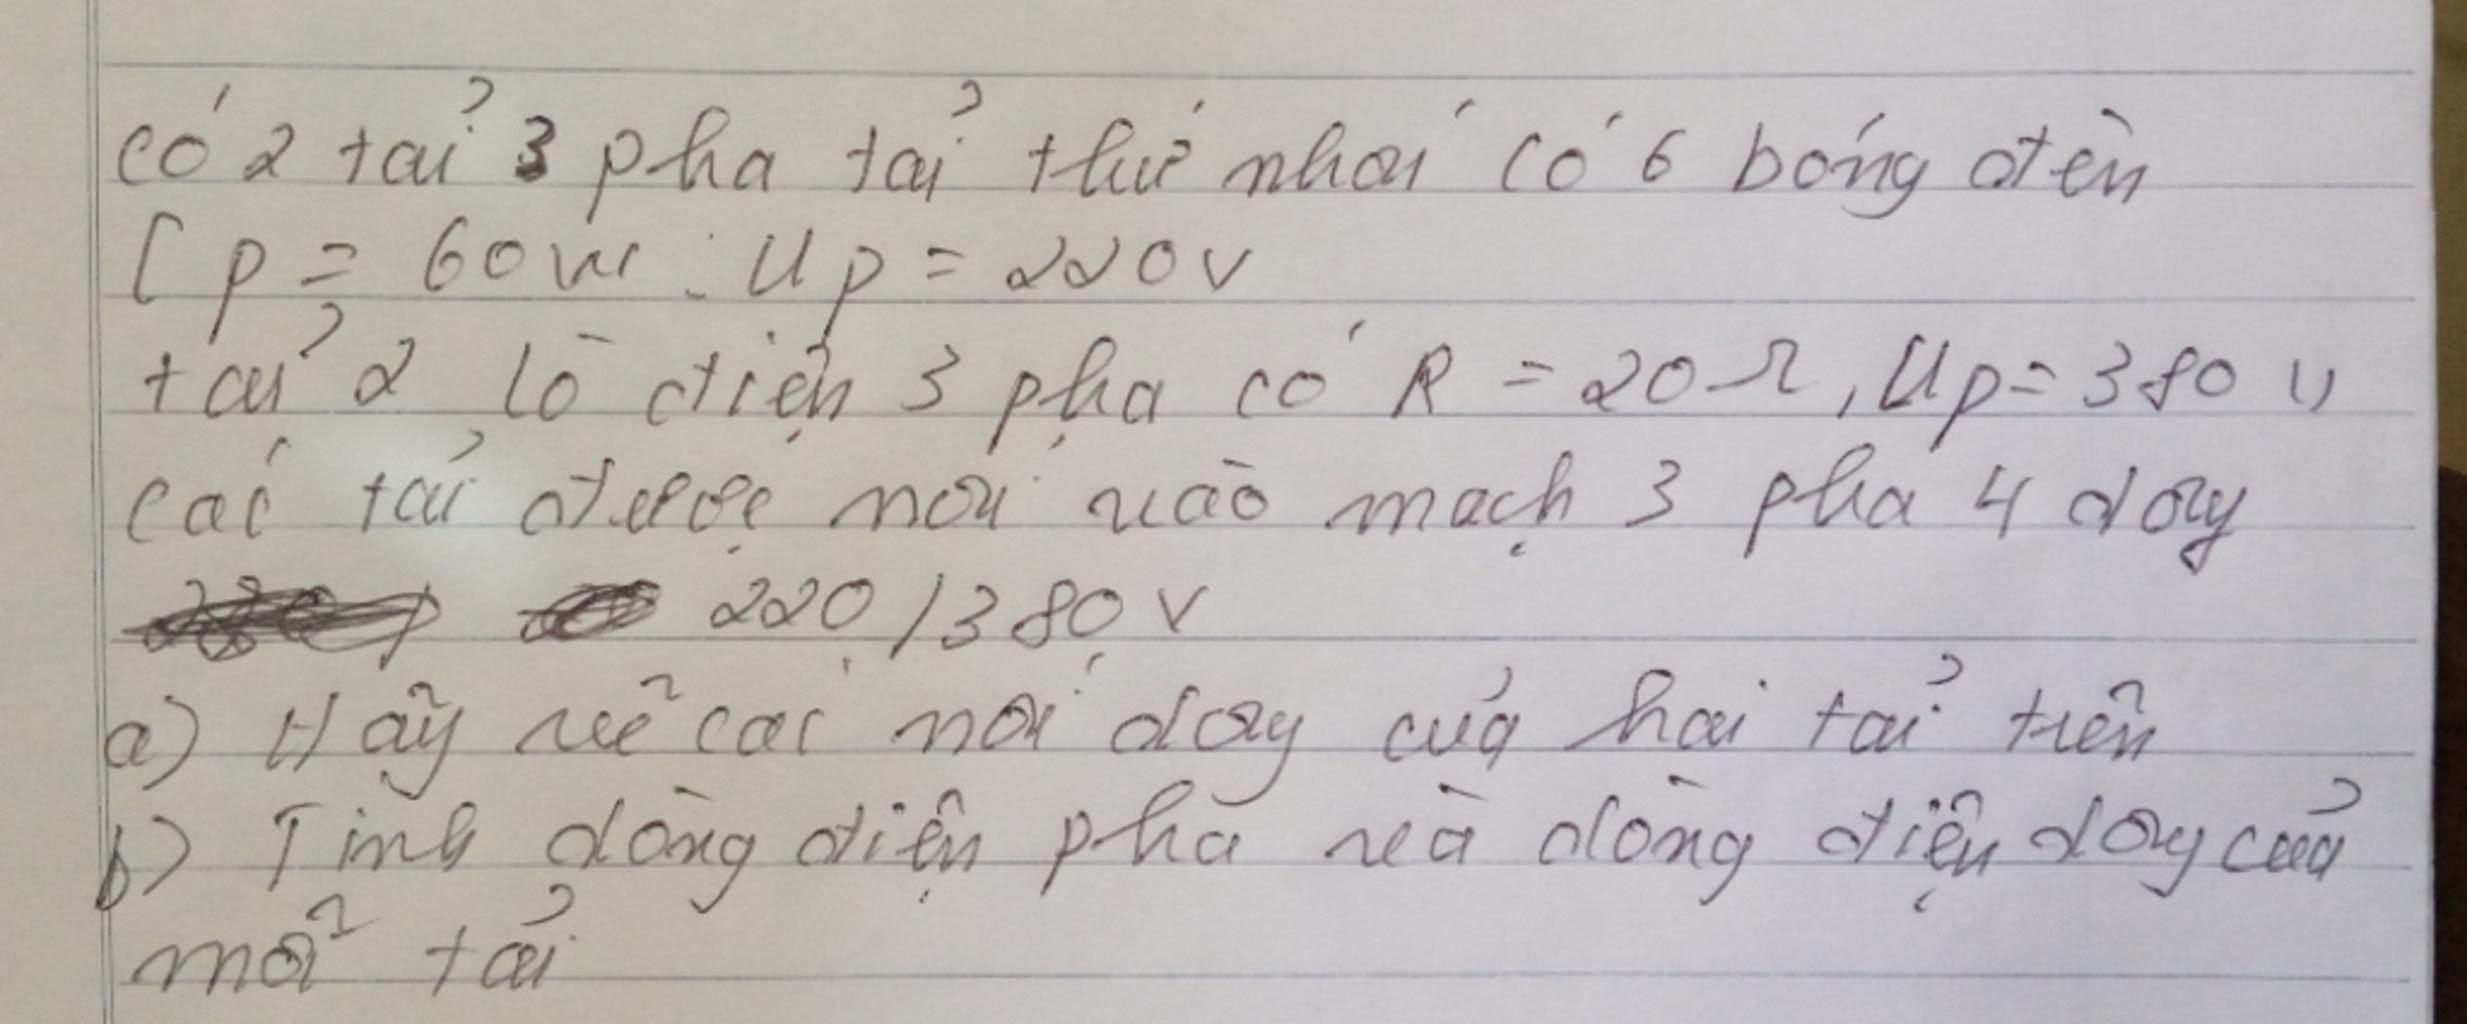 có 2 tải 3 pha tải thứ nhai có 6 bóng đèn
[ p = 60w : Up = 220v
tải 2 lò điện 3 pha có R = 20Ω, Up = 380 v
các tải được nối vào mạch 3 pha 4 dây
220 / 380 v
a) Hãy vẽ các nối dây của hai tải trên
b) Tính dòng điện pha và dòng điện dây của
mỗi tải